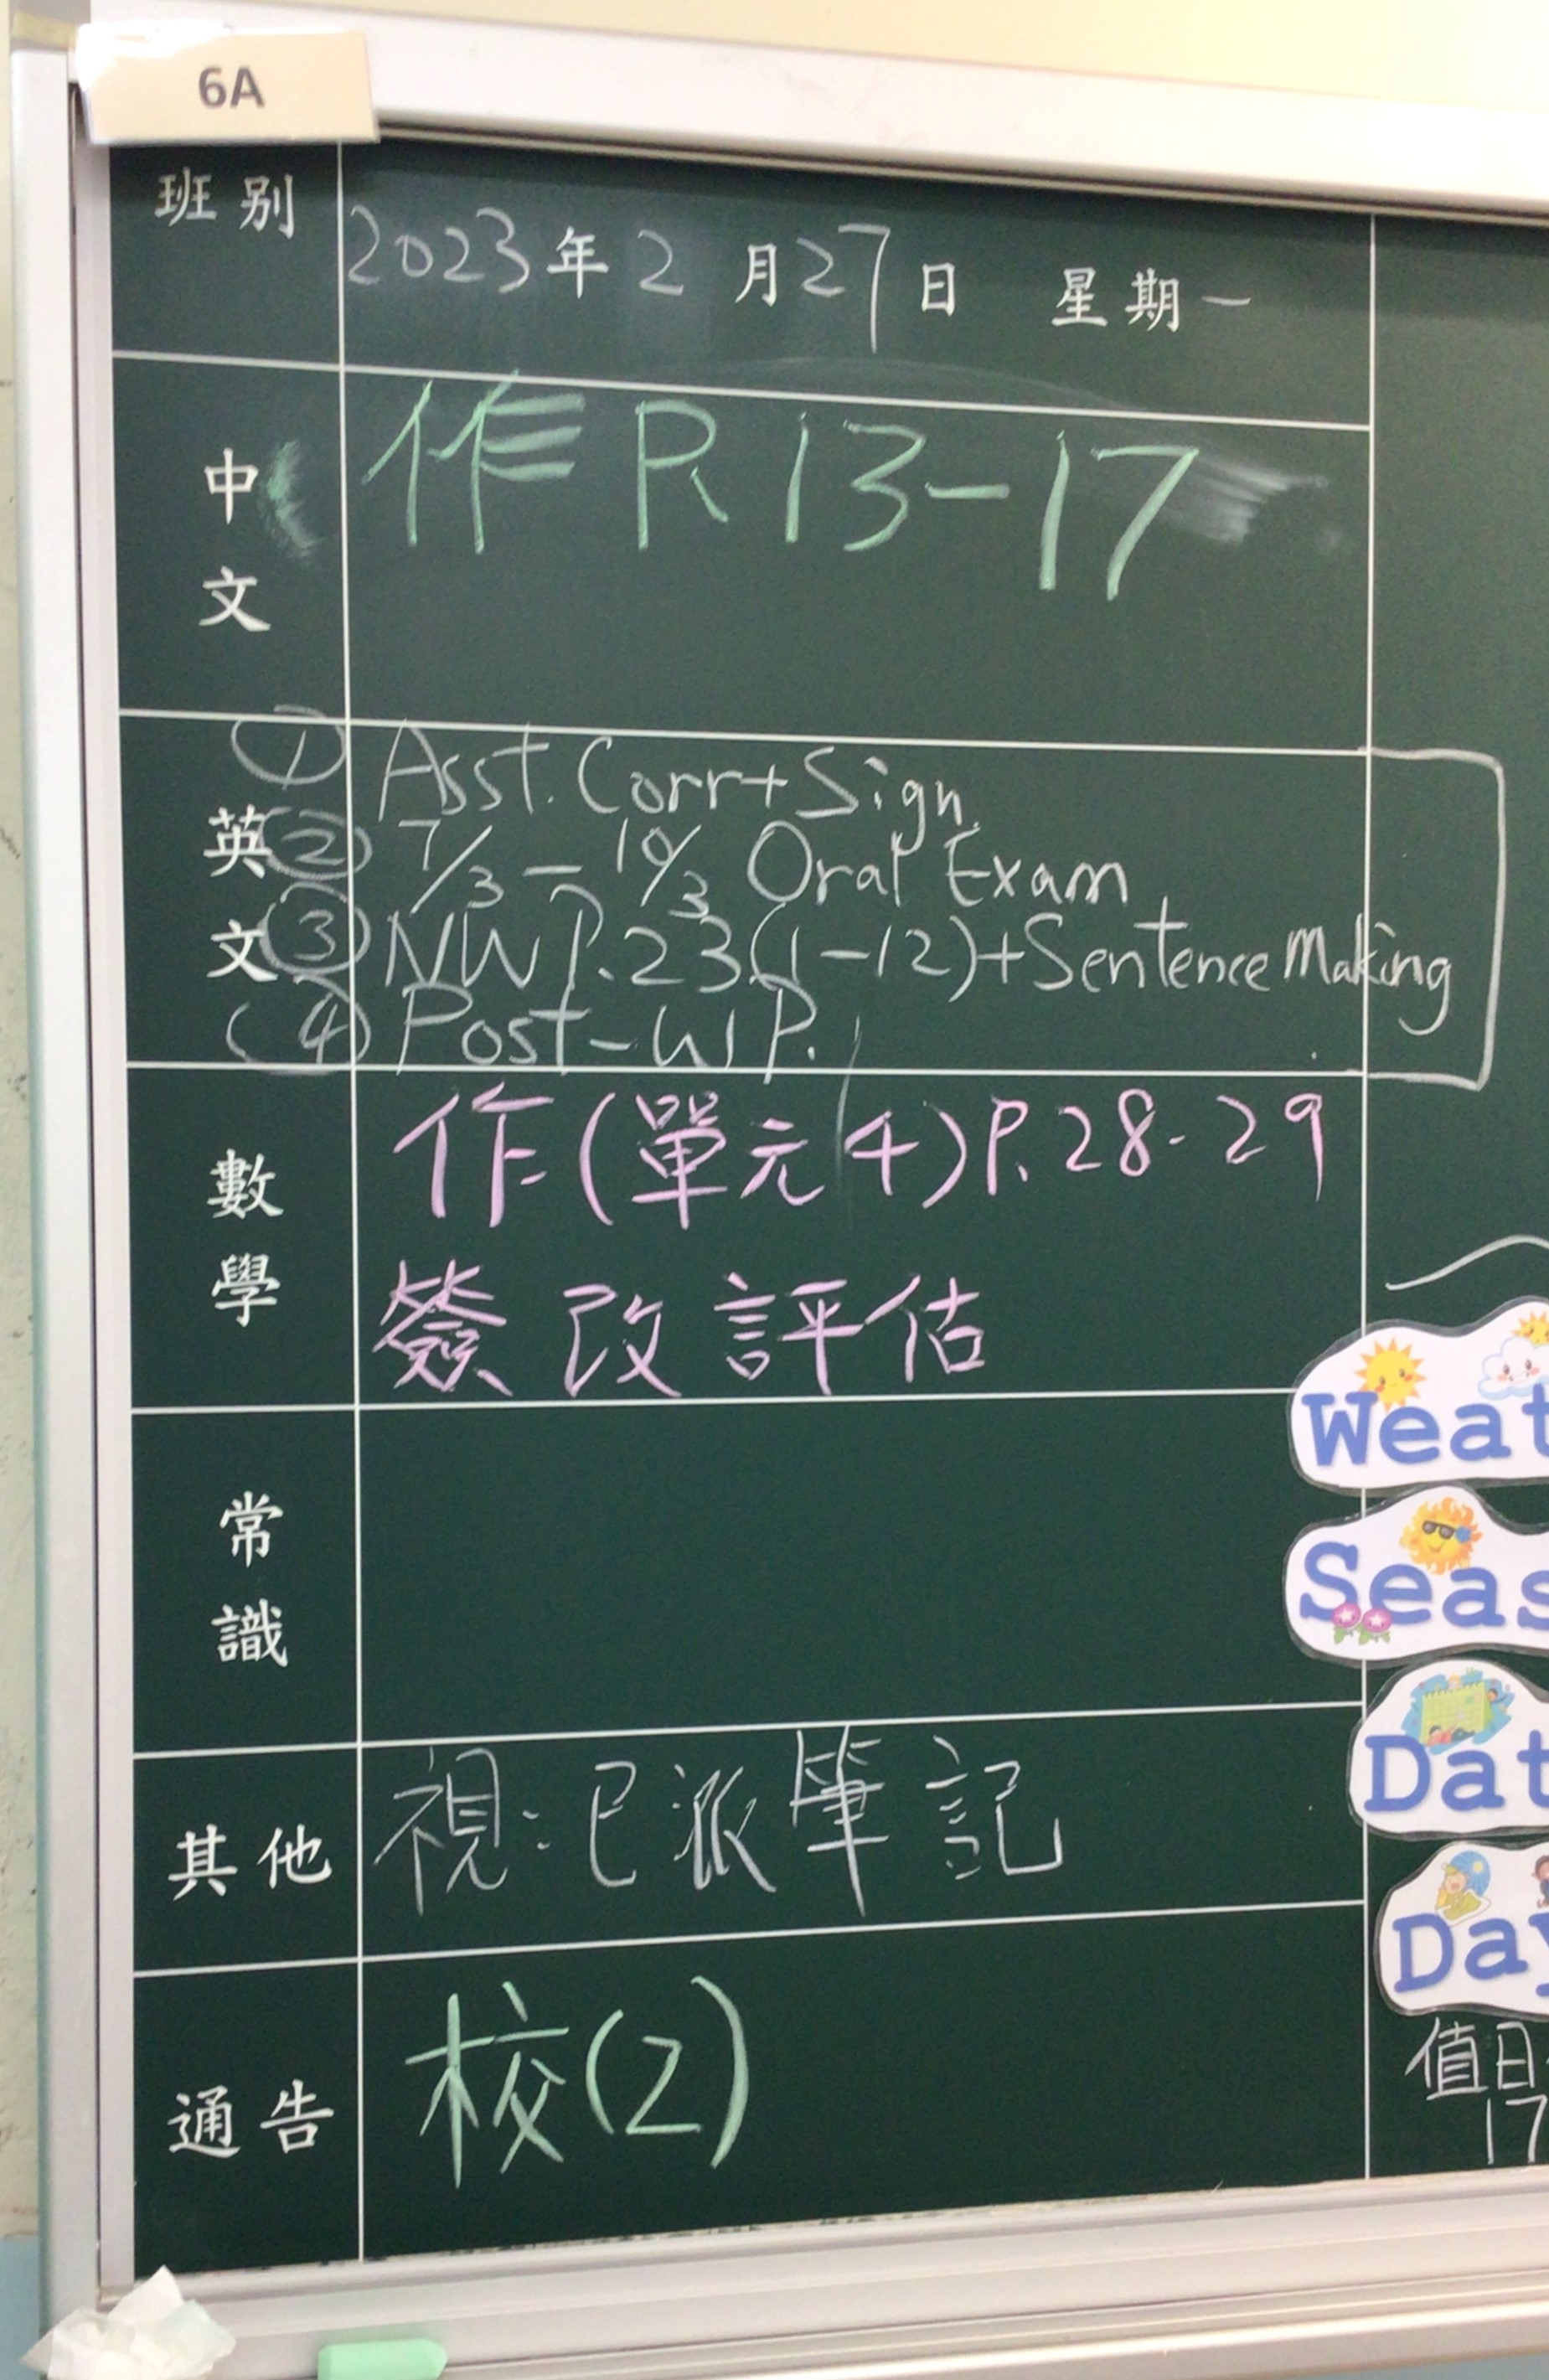 6A
班別
2023年2月27日 星期一
中文
作 P. 13-17
英文
① Asst. Corr + Sign
② 7/3 - 10/3 Oral Exam
③ NW P.23 (1-12) + Sentence Making
④ Post-W P.1
數學
作(單元4) P.28-29
簽改評估
常識
其他
視:已派筆記
通告
校(2)
Weat
Seas
Dat
Day
值日
17